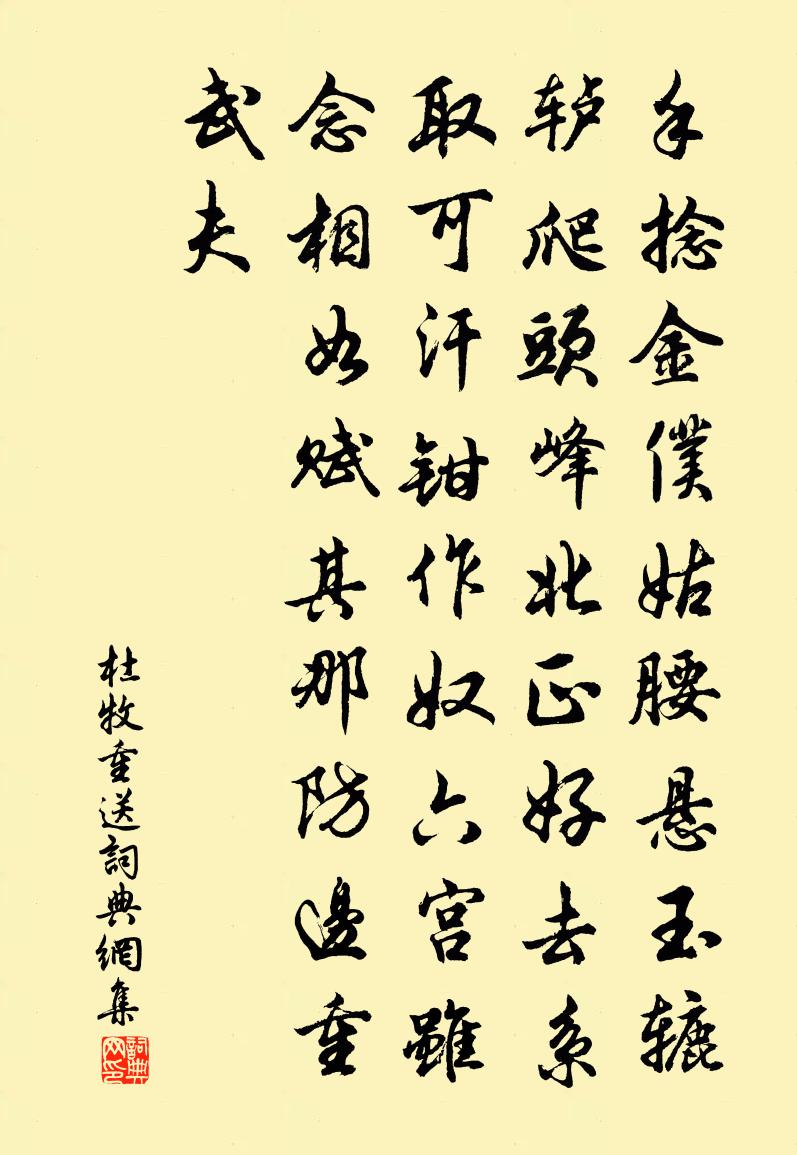 手捻金僕姑腰悬玉辘
轳爬頭峰北正好去系
取可汗钳作奴六宫雖
念相如赋其那防邊重
武夫
杜牧重送詞典網集
詞典网印